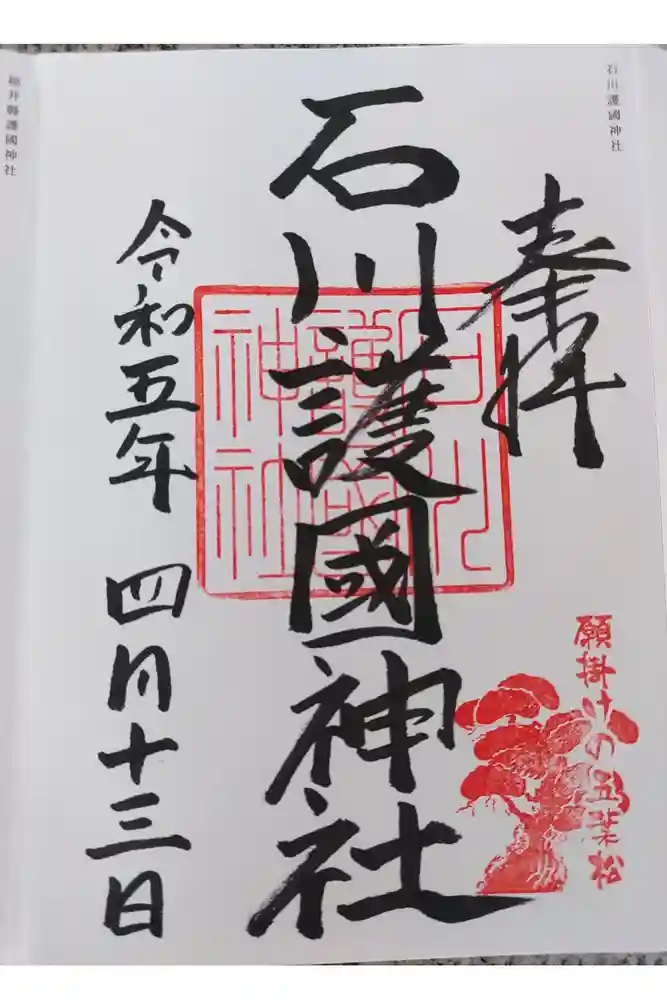 石川護國神社
奉拝
石川護國神社
石川護國神社
願掛けの五葉松
令和五年 四月十三日
福井縣護國神社